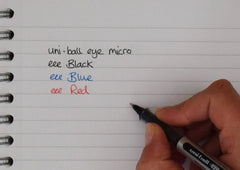 uni-ball eye micro
eee Black
eee Blue
eee Red
uni-ball